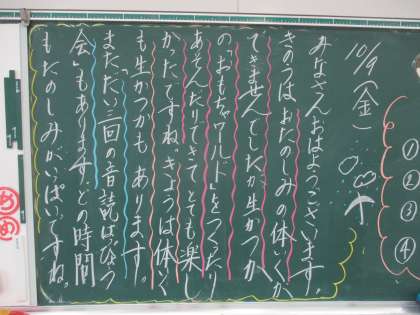 10/9(金)
みなさんおはようございます。
きのうは、おたのしみの体いくが
できませんでしたが、生かつか
の「おもちゃワールド」をつくったり
あそんだりできて、とても楽し
かったですね。きょうは体いく
も生かつかもあります。
また、だい三回の音読はっぴょう
会もあります。どの時間
もたのしみがいっぱいですね。
①
②
③
④
め
め